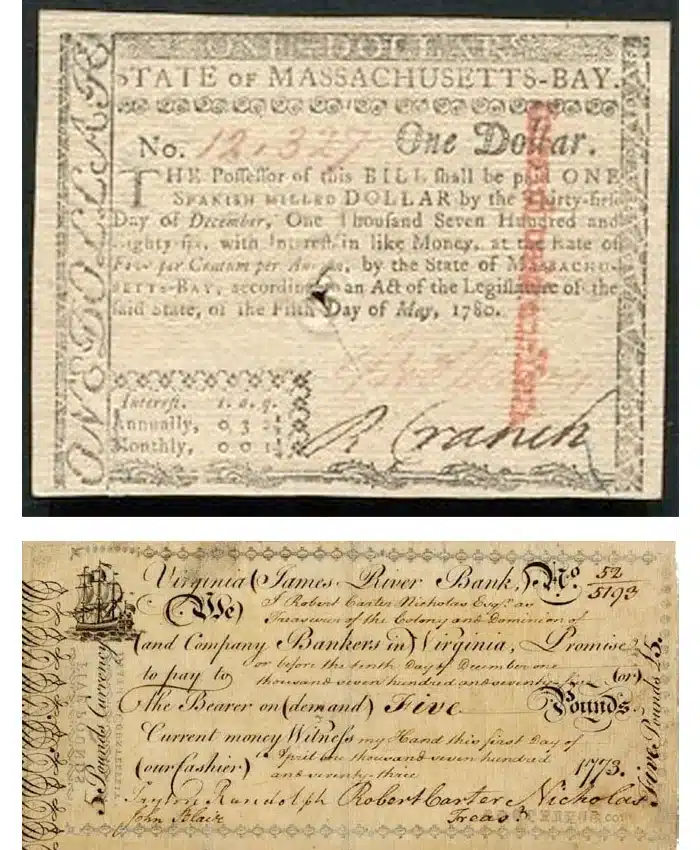 ONE DOLLAR
STATE OF MASSACHUSETTS-BAY.
No. 12,327 One Dollar.
THE Poſſeſſor of this BILL ſhall be paid ONE
SPANISH MILLED DOLLAR by the Thirty-firſt
Day of December, One Thouſand Seven Hundred and
Eighty-ſix, with Intereſt in like Money, at the Rate of
Five per Centum per Annum, by the State of MASSACHU-
SETTS-BAY, according to an Act of the Legiſlature of the
ſaid State, of the Fifth Day of May, 1780.
Intereſt. s. d. q.
Annually, 0 3 2½
Monthly, 0 0 1¼
R Cranch
ONE DOLLAR
Virginia (James River Bank,) No. 52
5193
(We) J Robert Carter Nicholas Esqr. as
Treasurer of the Colony and Dominion of
(and Company Bankers in) Virginia, Promise
to pay to or before the tenth day of December one
thousand seven hundred and seventy-five (or)
the Bearer on (demand) Five Pounds.
Current money Witneſs my Hand this first Day of
(our Cashier) April one thousand seven hundred
and seventy-three 1773.
Peyton Randolph Robert Carter Nicholas
John Blair Treasr.
5 Pounds Currency
Five Pounds £5.